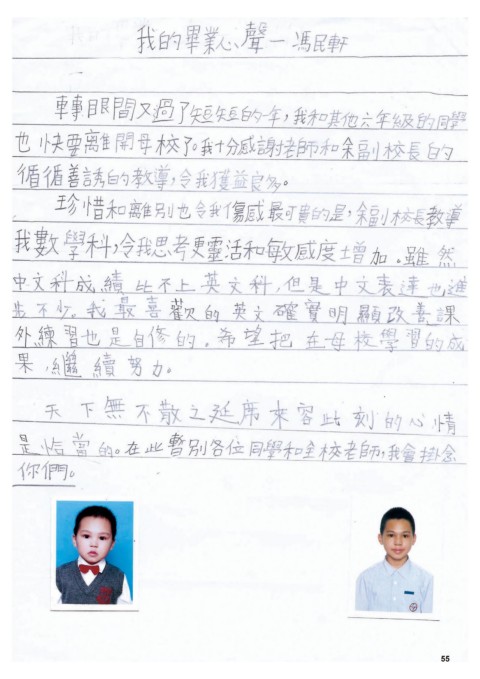 我的畢業心聲－馮民軒
轉眼間又過了短短的一年，我和其他六年級的同學
也快要離開母校了。我十分感謝老師和余副校長的
循循善誘的教導，令我獲益良多。
珍惜和離別也令我傷感最可貴的是，余副校長教導
我數學科，令我思考更靈活和敏感度增加。雖然
中文科成績比不上英文科，但是中文表達也進
步不少。我最喜歡的英文確實明顯改善課
外練習也是自修的。希望把在母校學習的成
果，繼續努力。
天下無不散之延席來容此刻的心情
是恰當的。在此暫別各位同學和全校老師，我會掛念
你們。
55